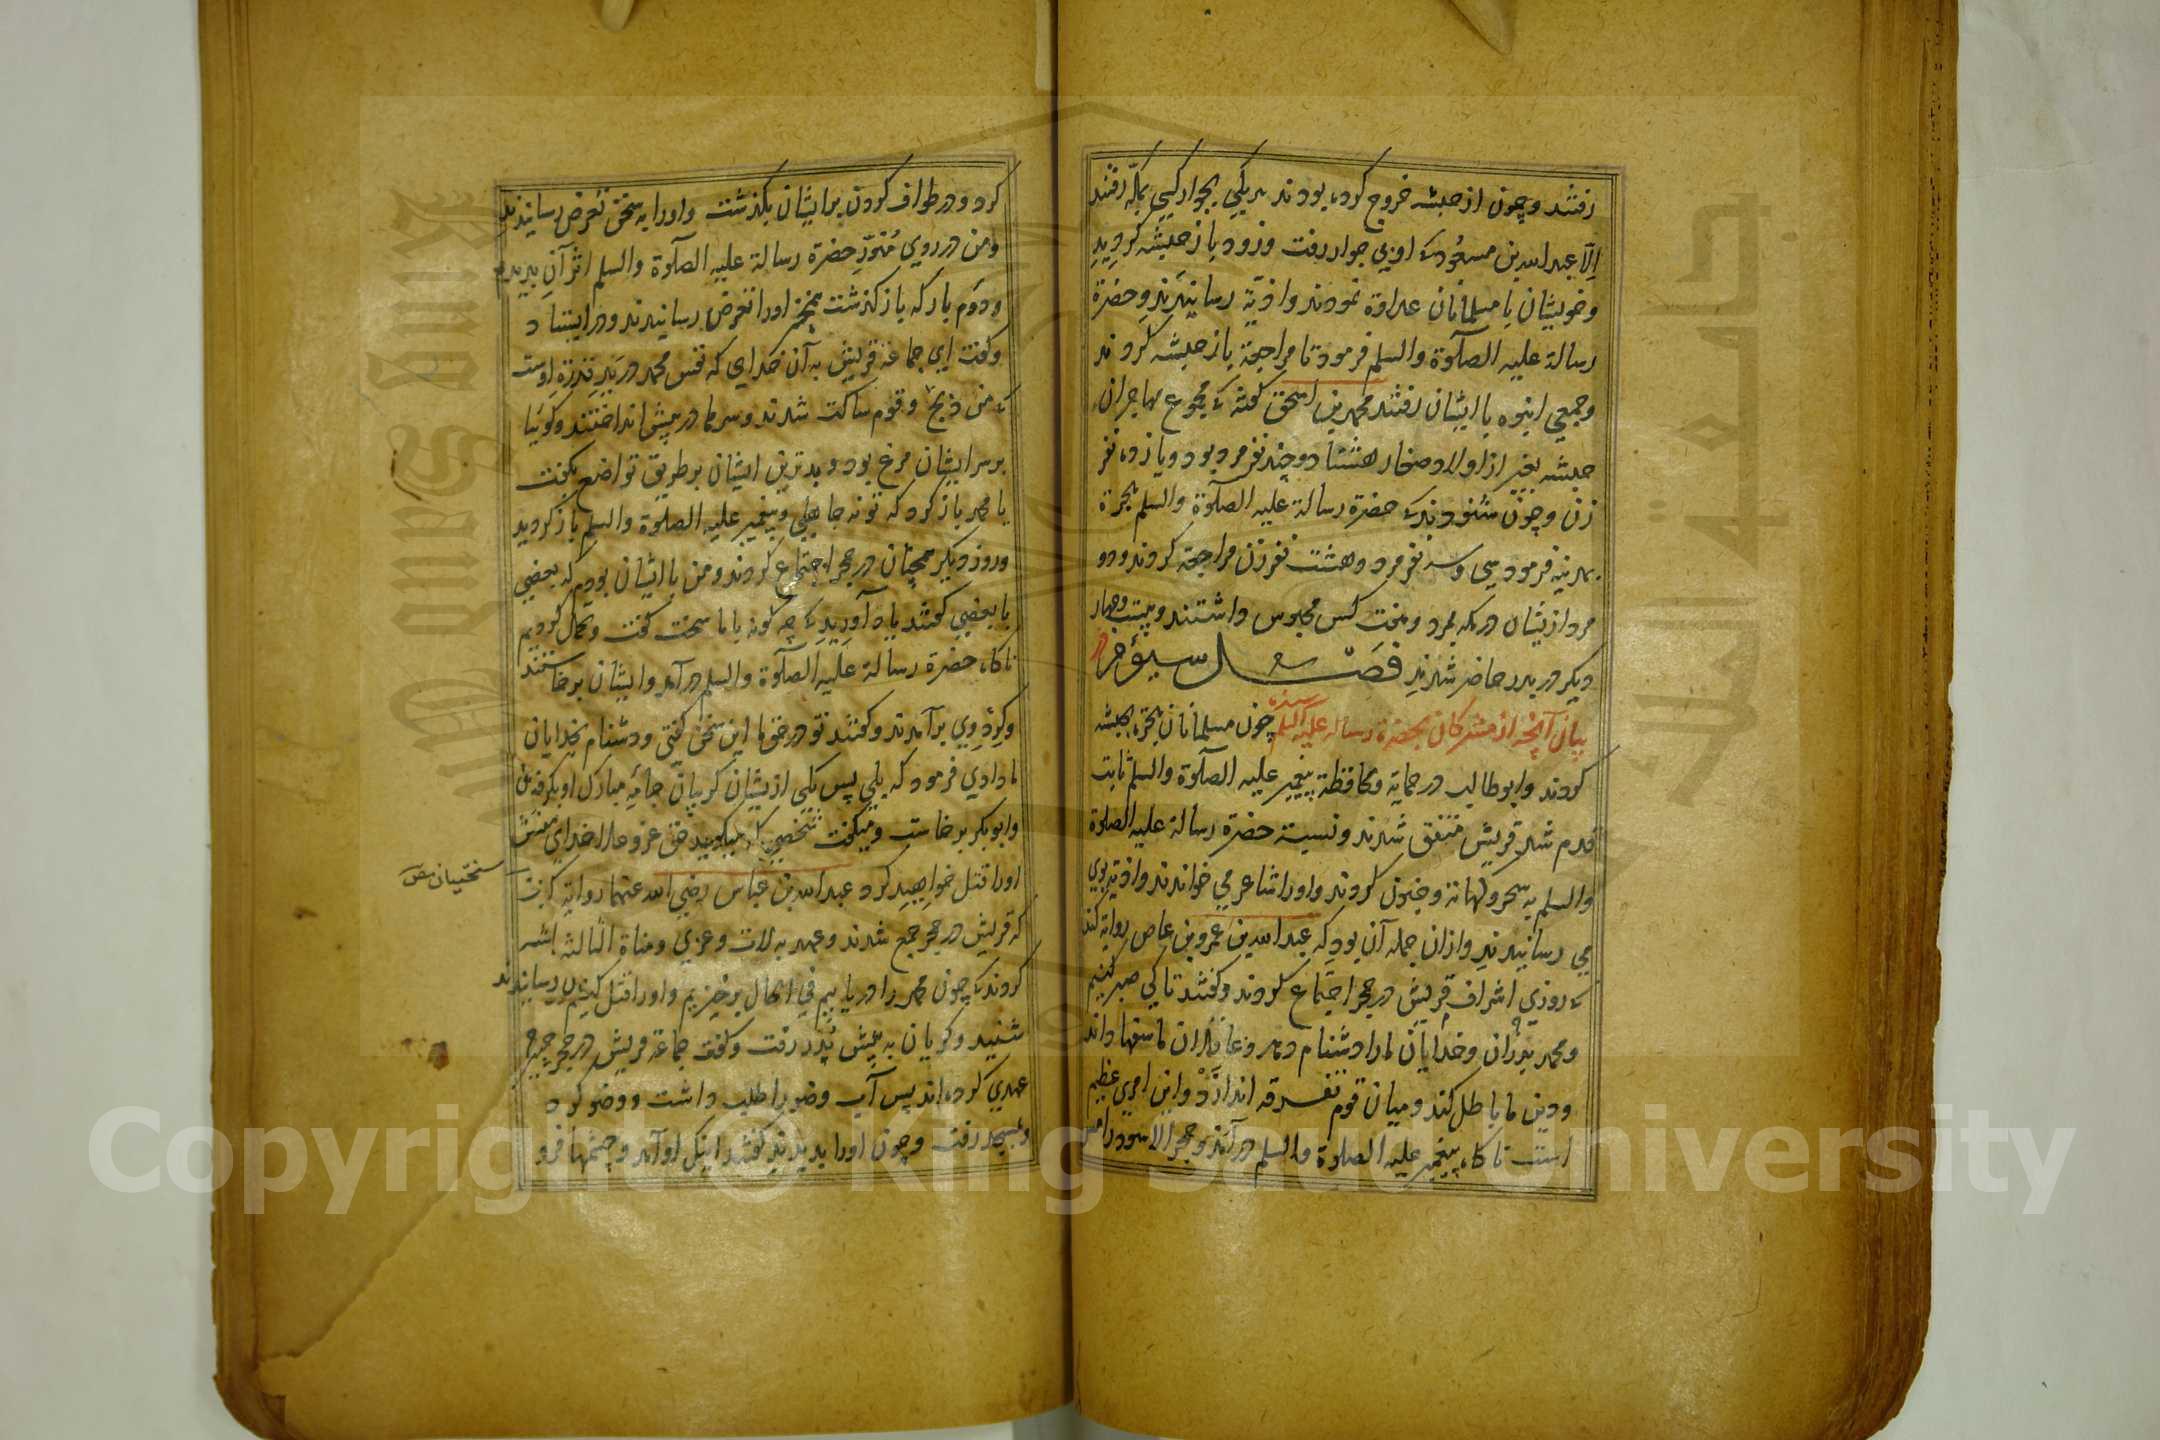 رفتند و چون از حبشه خروج کرده بودند هر یکی بجوار کسی بمکّه رفتند
الّا عبدالله بن مسعود که او بی جوار رفت و زود باز حبشه گردید
و خویشان با مسلمانان عداوة نمودند و اذیّة رسانیدند و حضرة
رسالة علیه الصلوة والسلم فرمود تا مراجعة باز حبشه کردند
و جمعی انبوه با ایشان رفتند محمد بن اسحق گفته که مجموع مهاجران
حبشه بغیر از اولاد صغار هشتاد و چند نفر مرد بود و یازده نفر
زن و چون شنودند که حضرة رسالة علیه الصلوة والسلم هجرة
بمدینه فرمود سی و سه نفر مرد و هشت نفر زن مراجعة کردند و دو
مرد ازیشان در مکه بمرد و هفت کس محبوس داشتند و بیست و چهار
دیگر در بدر حاضر شدند فصل سیوم در
بیان آنچه از مشرکان بحضرة رساله علیه السلم رسید چون مسلمانان هجرة بحبشه
کردند و ابوطالب در حمایة و محافظة پیغمبر علیه الصلوة والسلم ثابت
قدم شد قریش متفق شدند و نسبة حضرة رسالة علیه الصلوة
والسلم به سحر و کهانة و جنون کردند و او را شاعر می خواندند و اذیة بوی
می رسانیدند و ازان جمله آن بود که عبدالله بن عمرو بن عاص روایة کند
که روزی اشراف قریش در حجر اجتماع کردند و گفتند تا کی صبر کنیم
و محمد پدران و خدایان ما را دشنام دهد و عاقلان ما سفها داند
و دین ما باطل کند و میان قوم تفرقه اندازد و این امری عظیم
است ناگاه پیغمبر علیه الصلوة والسلم درآمد و حجر الاسود را مس
کرد و در طواف کردن بر ایشان بگذشت و او را به سخن تعرض رسانیدند
و من در روی منوّر حضرة رسالة علیه الصلوة والسلم اثر آن بدیدم
و دوم بار که باز گذشت بسخن او را تعرض رسانیدند و در ایستاد
و گفت ای جماعة قریش به آن خدای که نفس محمد در ید قدرة اوست
که من ذبح و قوم ساکت شدند و سرها در پیش انداختند و گوئیا
بر سر ایشان مرغ بود و بدترین ایشان بر طریق تواضع بگفت
یا محمد باز گرد که تو نه جاهلی و پیغمبر علیه الصلوة والسلم باز گردید
و روز دیگر همچنان در حجر اجتماع کردند و من با ایشان بودم که بعضی
با بعضی گفتند یاد آورید که چه گونه با ما سخت گفت و تحمل کردیم
ناگاه حضرة رسالة علیه الصلوة والسلم درآمد و ایشان برخاستند
و گرد وی برآمدند و گفتند تو در حق ما این سخن گفتی و دشنام بخدایان
ما دادی فرمود که بلی پس یکی ازیشان گریبان جامه مبارک او بگرفت
و ابوبکر برخاست و میگفت شخصی که میگوید حق عز و علا خدای منست
او را قتل خواهید کرد عبدالله بن عباس رضی الله عنهما روایة کرد
که قریش در حجر جمع شدند و عهد به لات و عزی و مناة الثالثة
کردند که چون محمد را دریابیم فی الحال برخیزیم و او را قتل
شنید و گریان به پیش پدر رفت و گفت جماعة قریش در حجر چنین
عهدی کرده اند پس آب وضو را طلب داشت و وضو کرد
و بمسجد رفت و چون او را بدیدند گفتند اینک او آمد و چشمها فرو